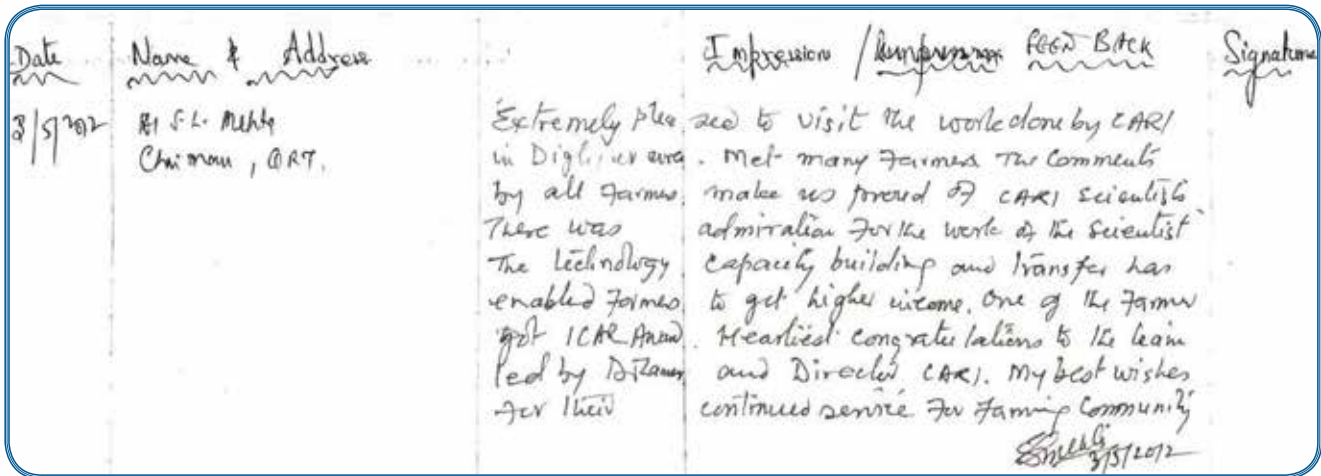 Date Name & Address Impression / FEED BACK Signature
3/5/2012 Dr S.L. Mehta Extremely pleased to visit the work done by CARI
Chairman, QRT. in Diglipur area. Met many Farmers The Comments
by all Farmers. make us proud of CARI Scientists
There was admiration For the work of the Scientist
The technology Capacity building and transfer has
enabled Farmers to get higher income. One of the Farmer
got ICAR Award. Heartiest congratulations to the team
led by and Director CARI. My best wishes
For their continued service For Farming Community
3/5/2012